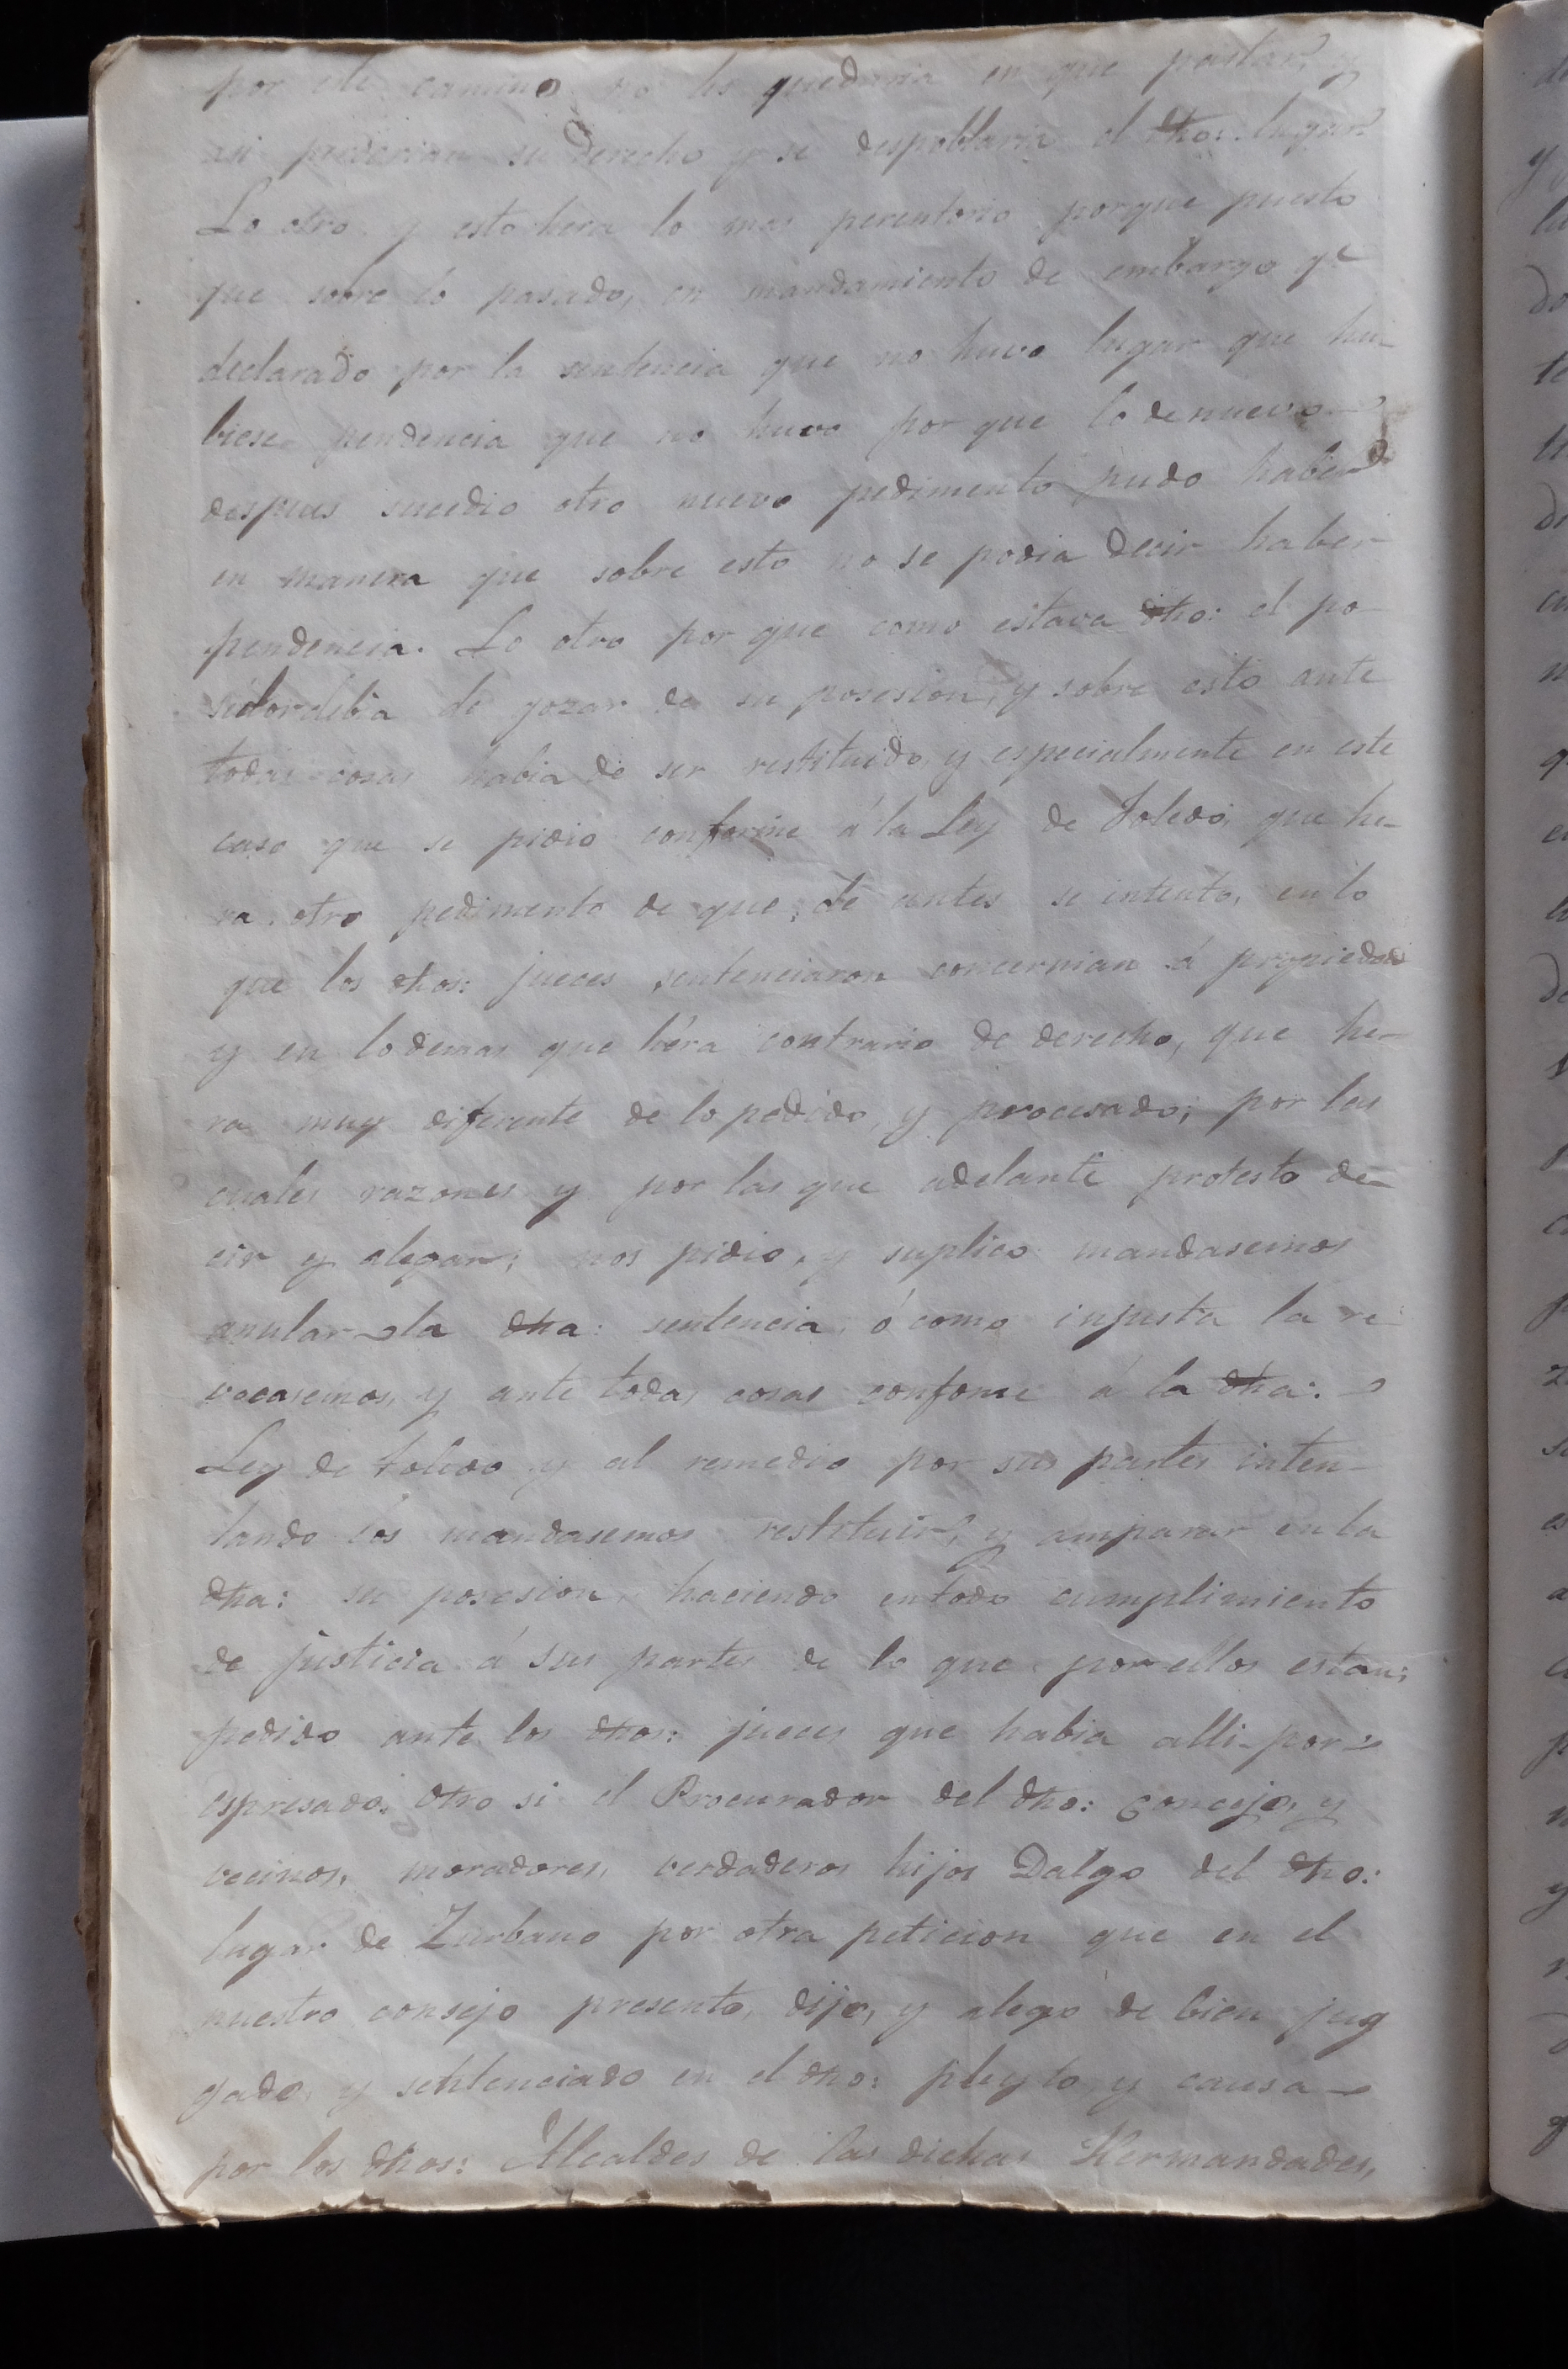 por este camino no les quedaria en que pastar, y
asi perderian su derecho y se despoblaria el dho: lugar.
Lo otro y esto hera lo mas perentorio porque puesto
que sobre lo pasado, en mandamiento de embargo qe
declarado por la sentencia que no huvo lugar que hu-
biese pendencia que no huvo por que lo de nuevo
despues sucedio otro nuevo pedimento pudo haber
en manera que sobre esto no se podia decir haber
pendencia. Lo otro por que como estava dho: el po-
sedor debia de gozar de su posesion, y sobre esto ante
todas cosas habia de ser restituido y especialmente en este
caso que se pidio conforme á la Ley de Toledo, que he-
ra otro pedimento de que de antes se intento, en lo
que los dhos: jueces sentenciaron concernian á propiedad
y en lo demas que héra contrario de derecho, que he-
ra muy diferente de lo pedido, y procesado; por las
cuales razones y por las que adelante protesto de-
cir y alegar; nos pidio, y suplico mandasemos
anular la dha: sentencia, ó como injusta la re-
vocasemos, y ante todas cosas confome á la dha:
Ley de toledo y al remedio por sus partes inten-
tando los mandasemos restituir, y amparar en la
dha: su posesion, haciendo en todo cumplimiento
de justicia á sus partes de lo que por ellos estan;
pedido ante los dhos: jueces que habia alli por
espresado; Otro si el Procurador del dho: Concejo, y
vecinos, moradores, verdaderos hijos Dalgo del dho:
lugar de Zurbano por otra peticion que en el
nuestro consejo presento, dijo, y alego de bien jug
gado, y sentenciado en el dho: pleyto y causa
por los dhos: Alcaldes de las dichas Hermandades,